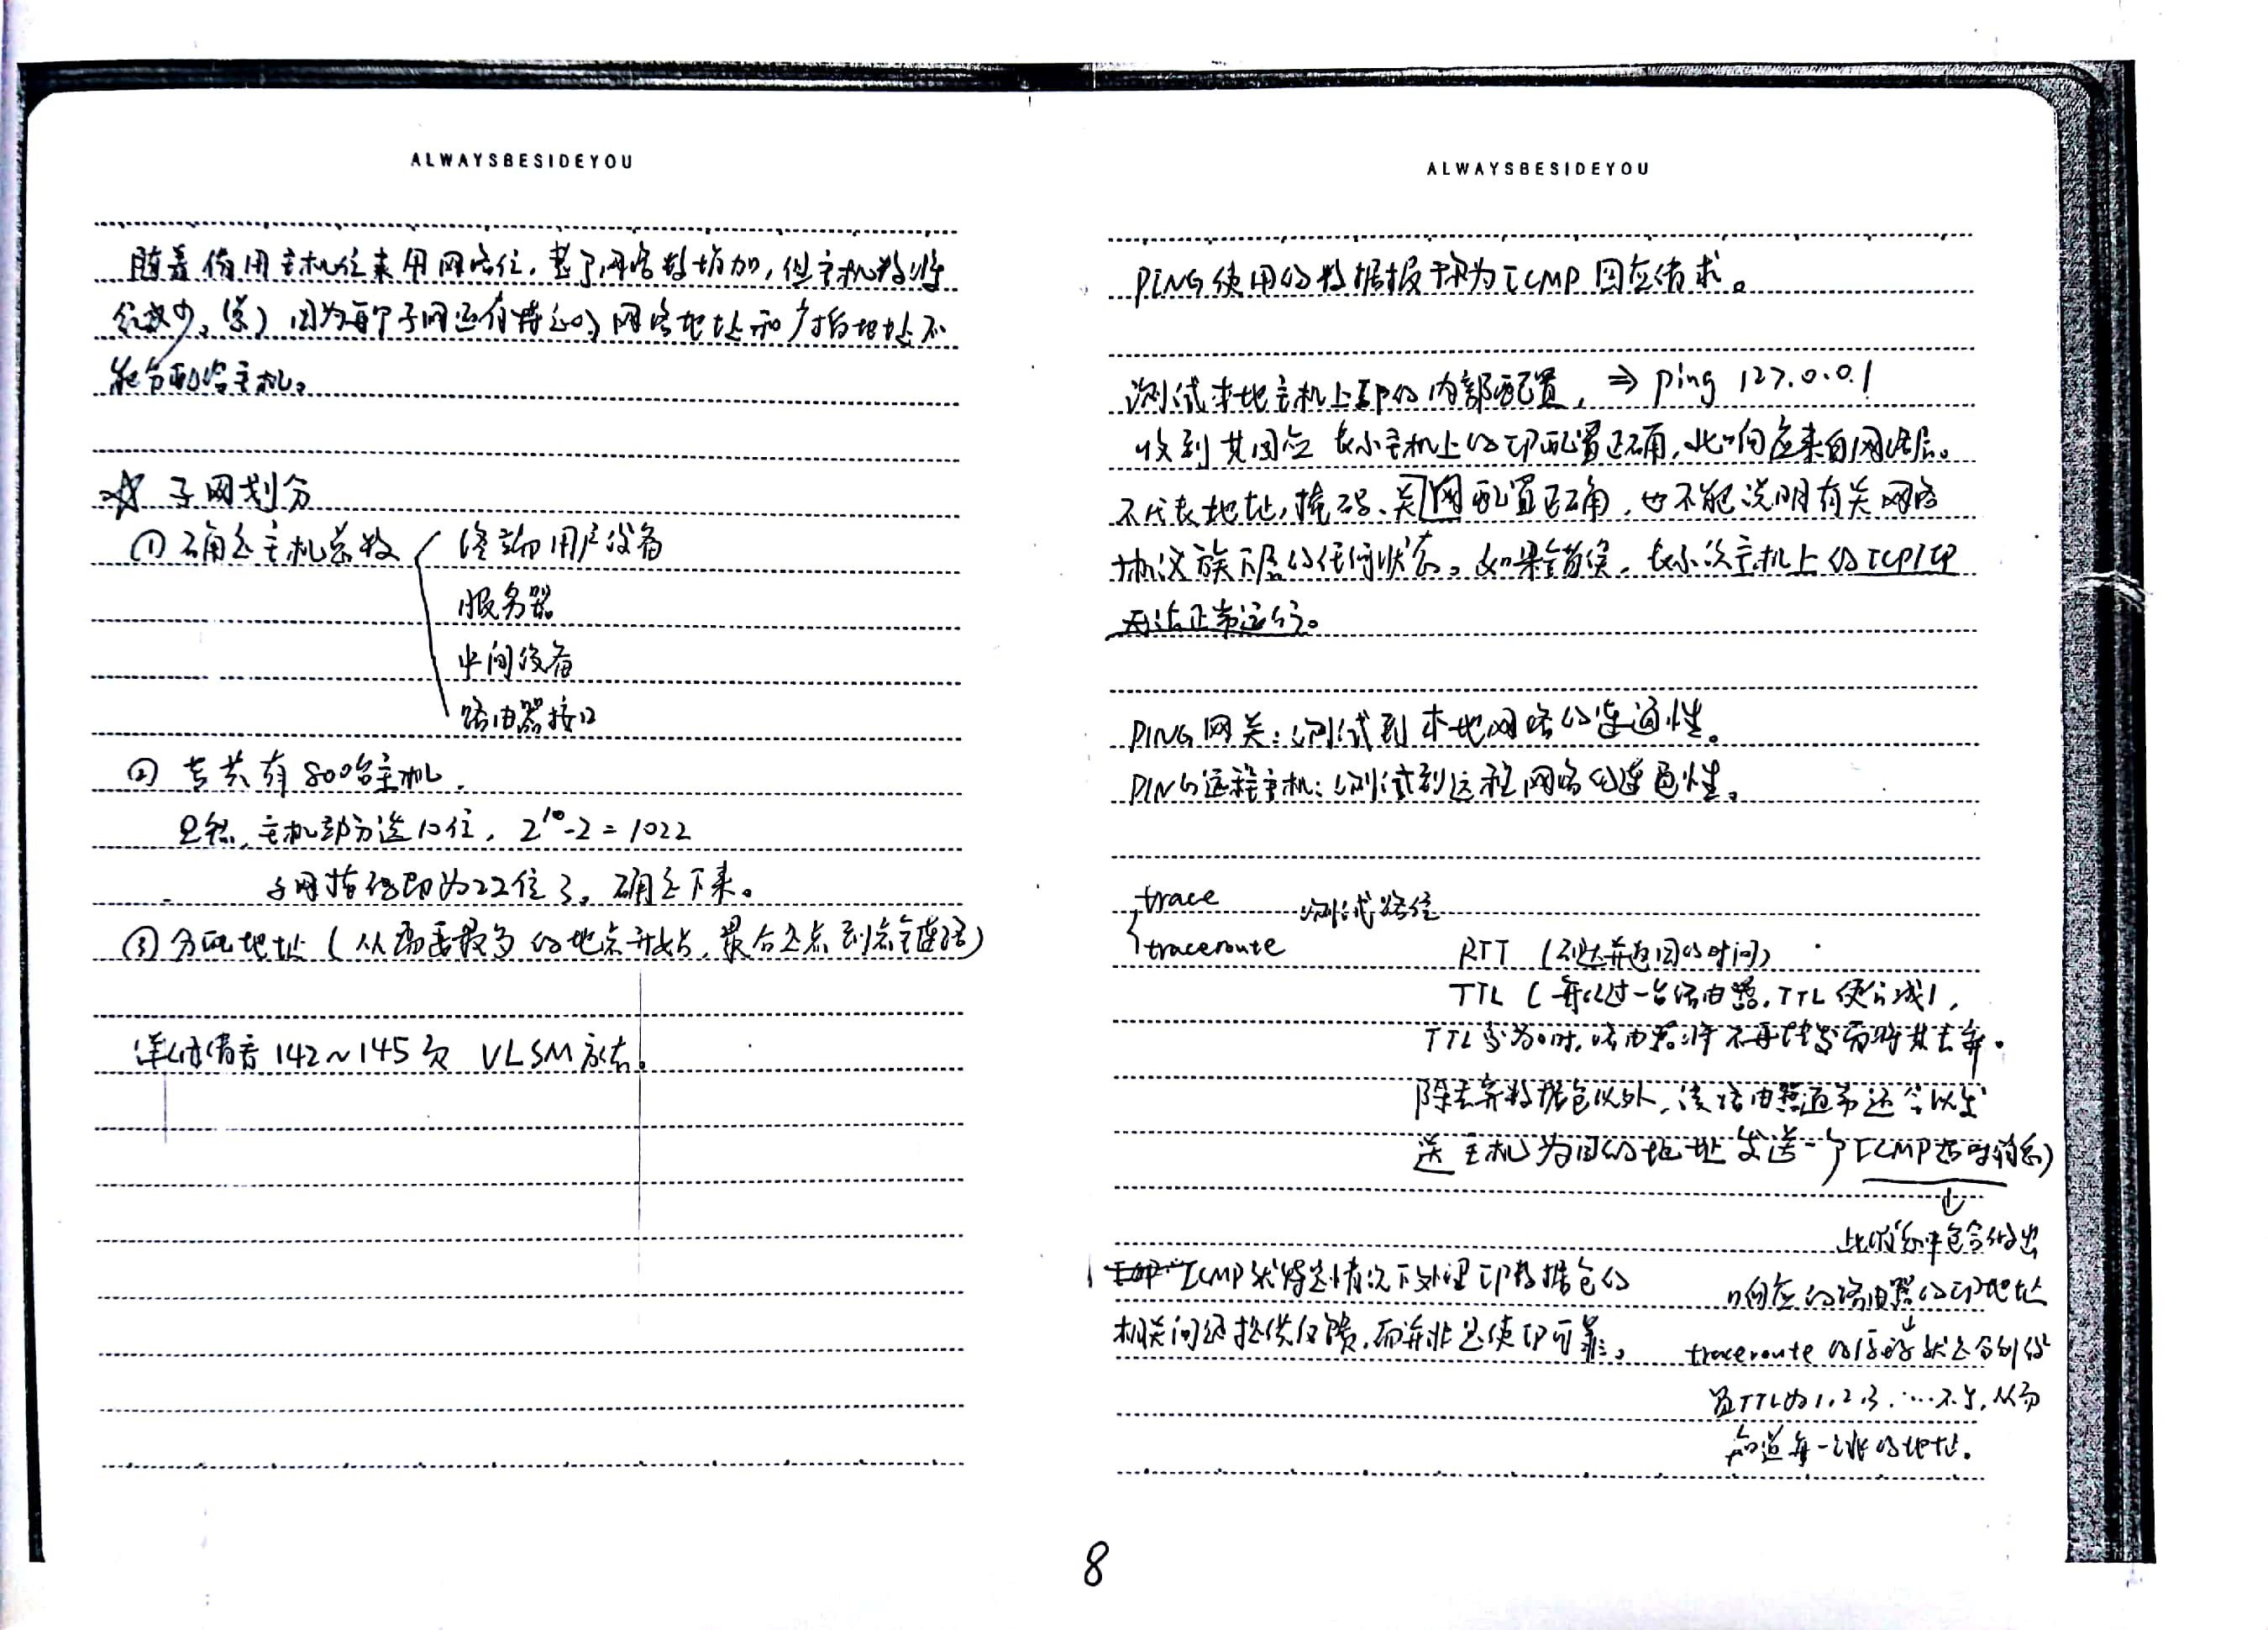 ALWAYSBESIDEYOU
随着借用主机位来用网络位，整个网络数增加，但主机数将
会减少。(总) 因为每个子网还有特定的网络地址和广播地址不
能分配给主机。
☆ 子网划分
① 确定主机总数 终端用户设备
服务器
中间设备
路由器接口
② 若共有800台主机.
显然，主机部分选10位，2¹⁰-2=1022
子网掩码即为22位了，确定下来。
③ 分配地址 (从需要最多的地点开始，最后还点到点链路)
详细请看142~145页 VLSM方法。
ALWAYSBESIDEYOU
PING使用的数据报称为ICMP回应请求。
测试本地主机上IP的内部配置， ⇒ ping 127.0.0.1
收到其回应 表示主机上的IP配置正确，此响应来自网络层。
不代表地址，掩码、关网配置正确，也不能说明有关网络
协议族下层的任何状态。如果错误，表示该主机上的TCP/IP
无法正常运行。
PING 网关：测试到本地网络的连通性。
PING远程主机：测试到远程网络的连通性。
trace
traceroute 测试路径
RTT (到达并返回的时间)
TTL (每经过一台路由器，TTL便会减1，
TTL变为0时，路由器将不再转发而将其丢弃。
除丢弃数据包以外，该路由器通常还会以发
送主机为目的地址发送一个ICMP超时消息)
↓
此消息中包含做出
响应的路由器的IP地址
↓
traceroute的信息就是分别设
置TTL为1,2,3.….不等，从而
知道每一跳的地址。
ICMP就特定情况下处理IP数据包的
相关问题提供反馈，而并非是使IP可靠。
8